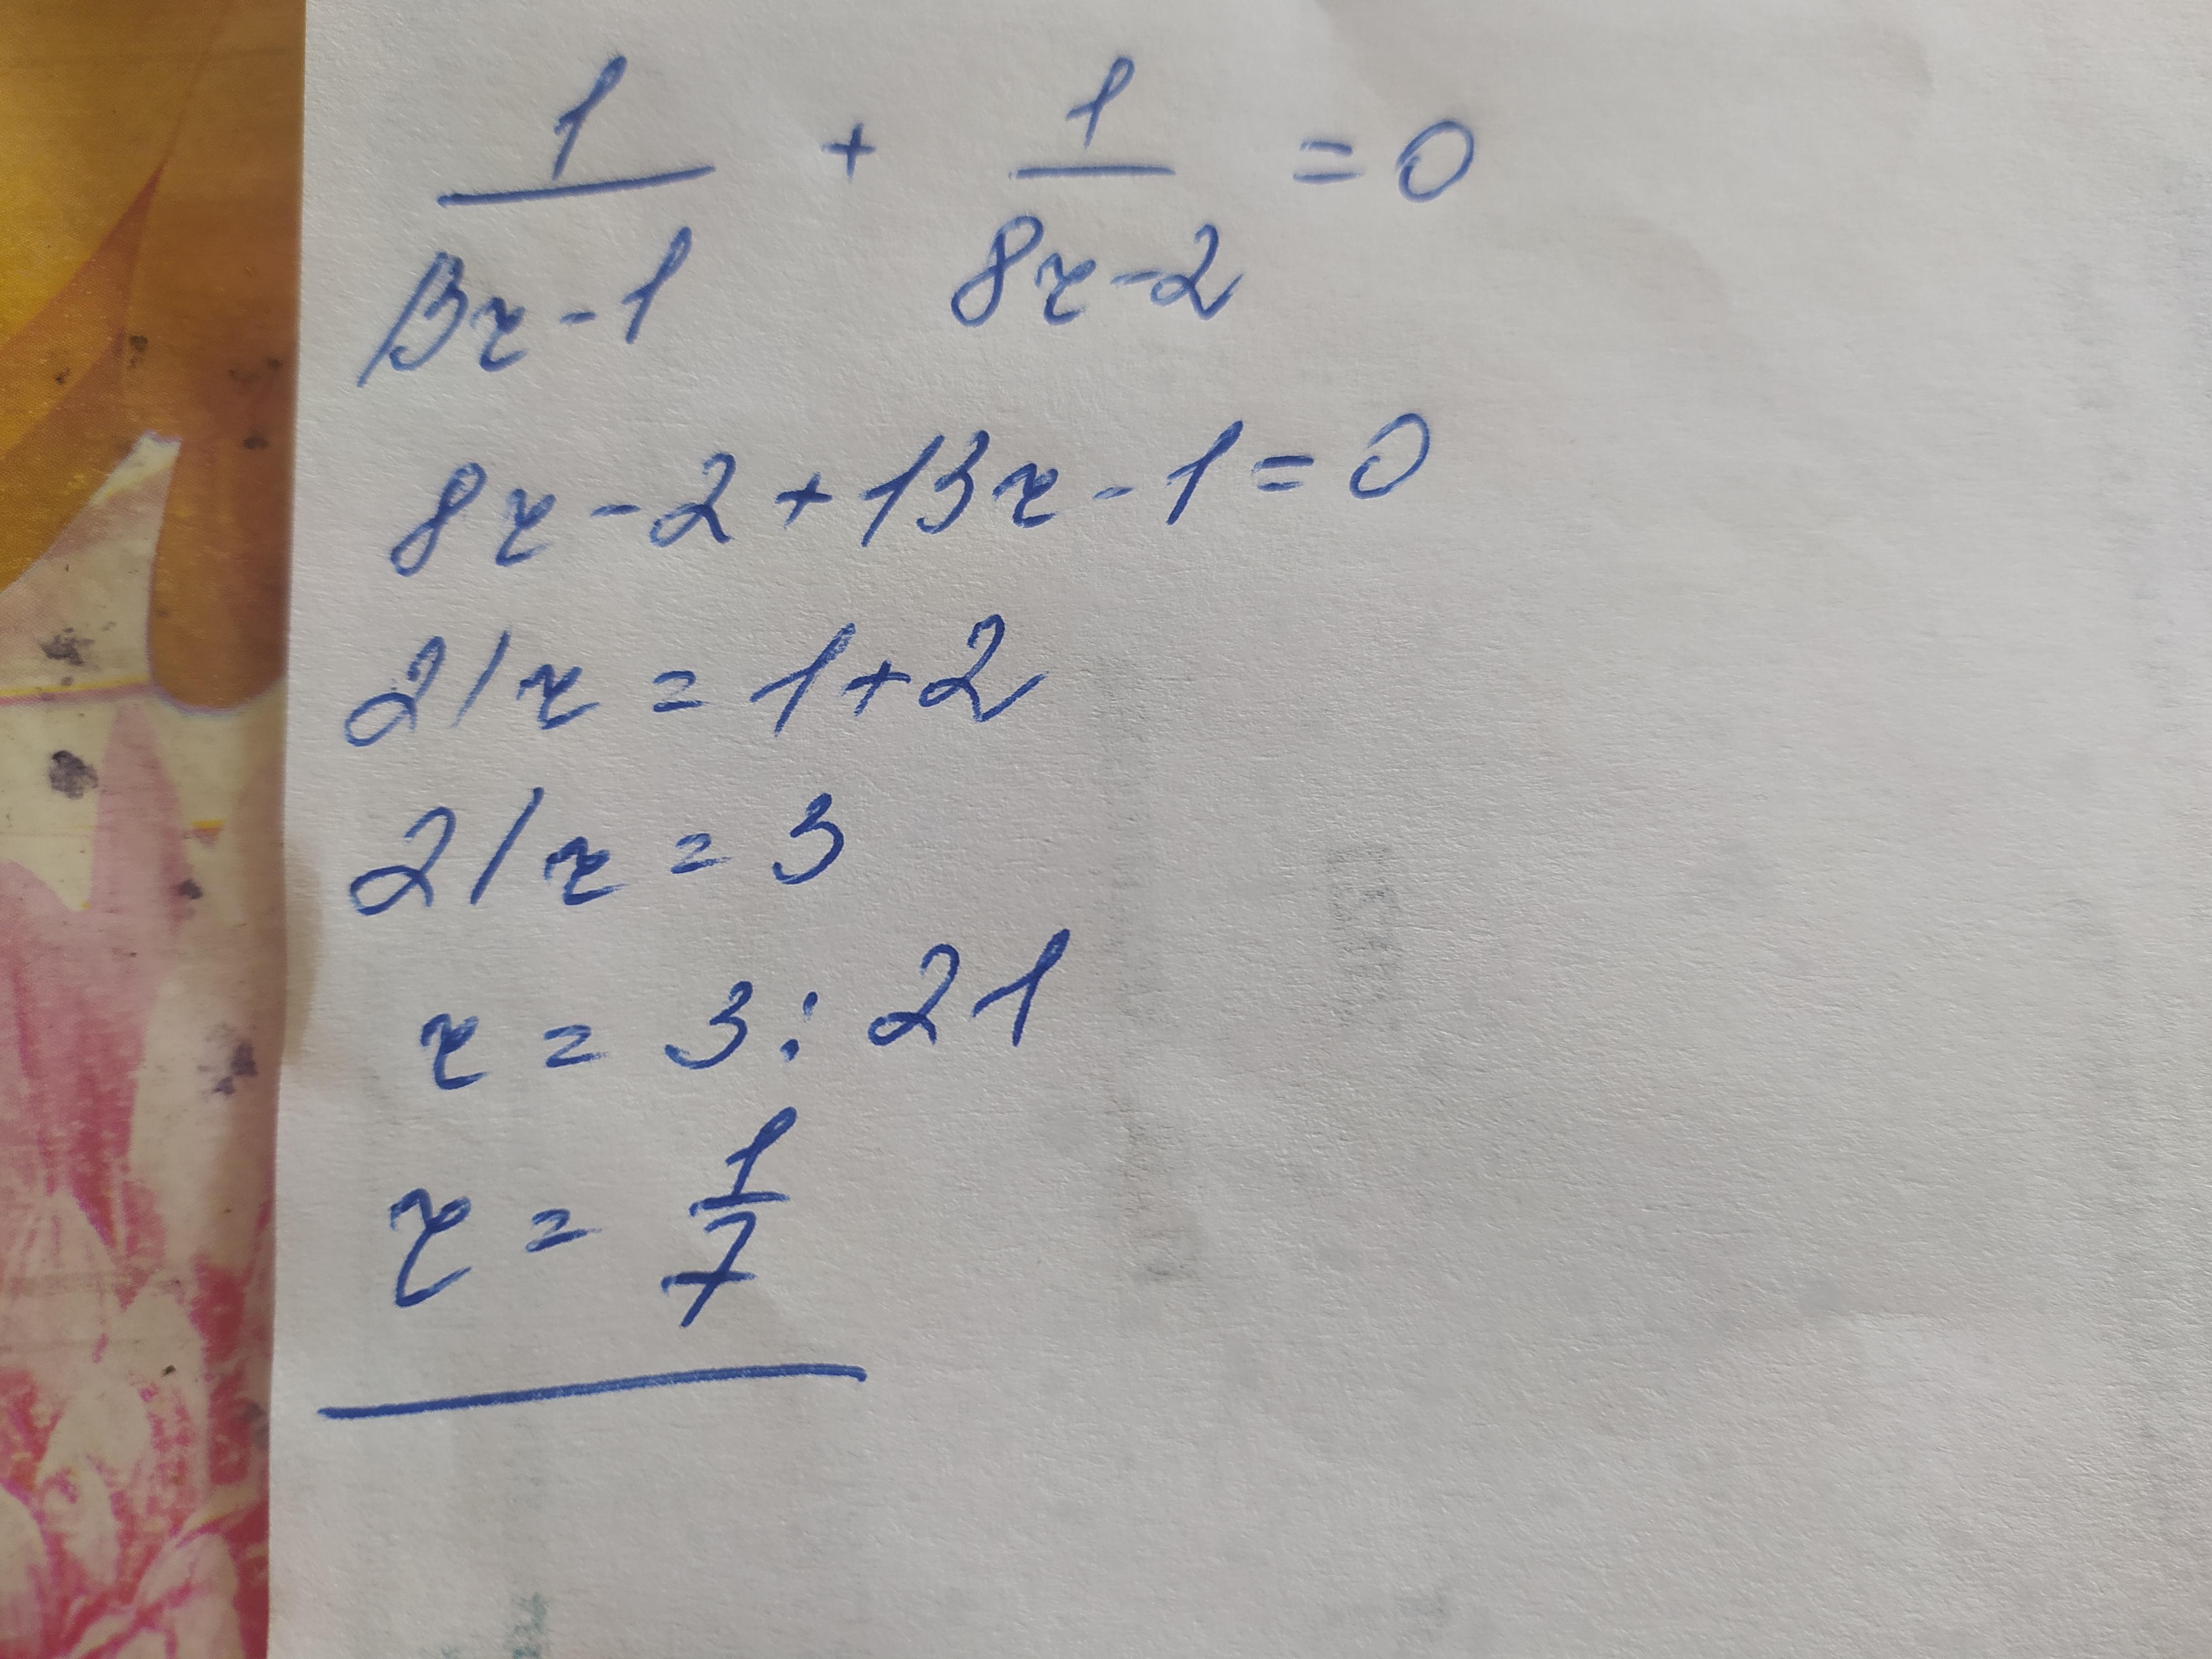 1/(13x-1) + 1/(8x-2) = 0
8x-2+13x-1=0
21x=1+2
21x=3
x=3:21
x=1/7